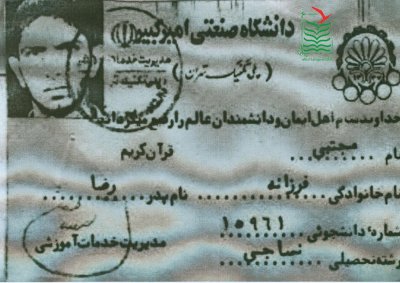 دانشگاه صنعتی امیرکبیر
(پلی تکنیک تهران)
مدیریت خدمات
خداوند مقام اهل ایمان و دانشمندان عالم را رفیع میگرداند
قرآن کریم
نام مجتبی
نام خانوادگی فرزانه نام پدر رضا
شماره دانشجوئی ۱۰۹۶۱
رشته تحصیلی نساجی
مدیریت خدمات آموزشی